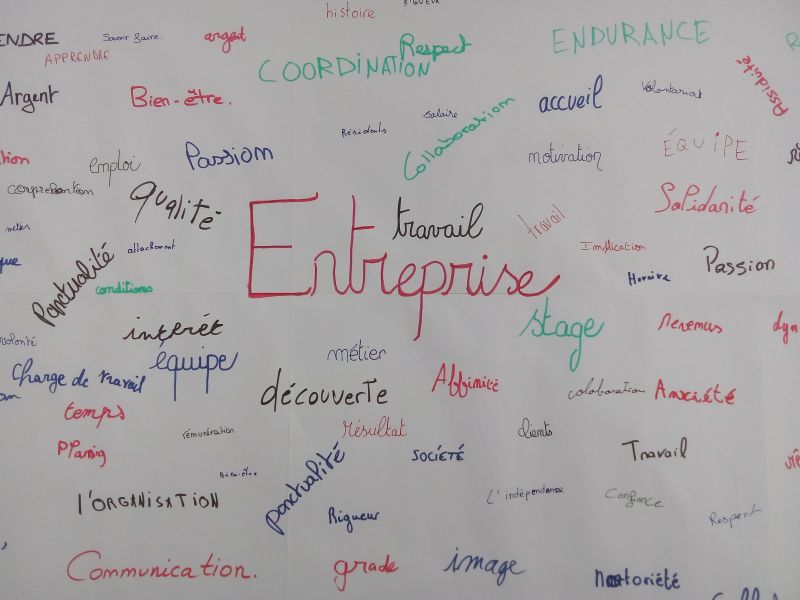 histoire
Savoir faire.
argent
Respect
ENDURANCE
APPRENDRE
COORDINATION
Argent
Bien-être.
Salaire
accueil
Volontariat
Assiduité
Résidents
Collaboration
emploi
Passion
motivation
ÉQUIPE
qualité
travail
travail
Solidarité
métier
attachement
Implication
Ponctualité
conditions
Entreprise
Horaire
Passion
intérêt
stage
Revenus
équipe
métier
Charge de travail
découverte
Affinité
colaboration
Anxiété
temps
rémunération
résultat
clients
Planing
Bien-être
ponctualité
SOCIÉTÉ
Travail
l'ORGANISATION
Rigueur
L'indépendance
Confiance
Respect
Communication.
grade
image
Notoriété